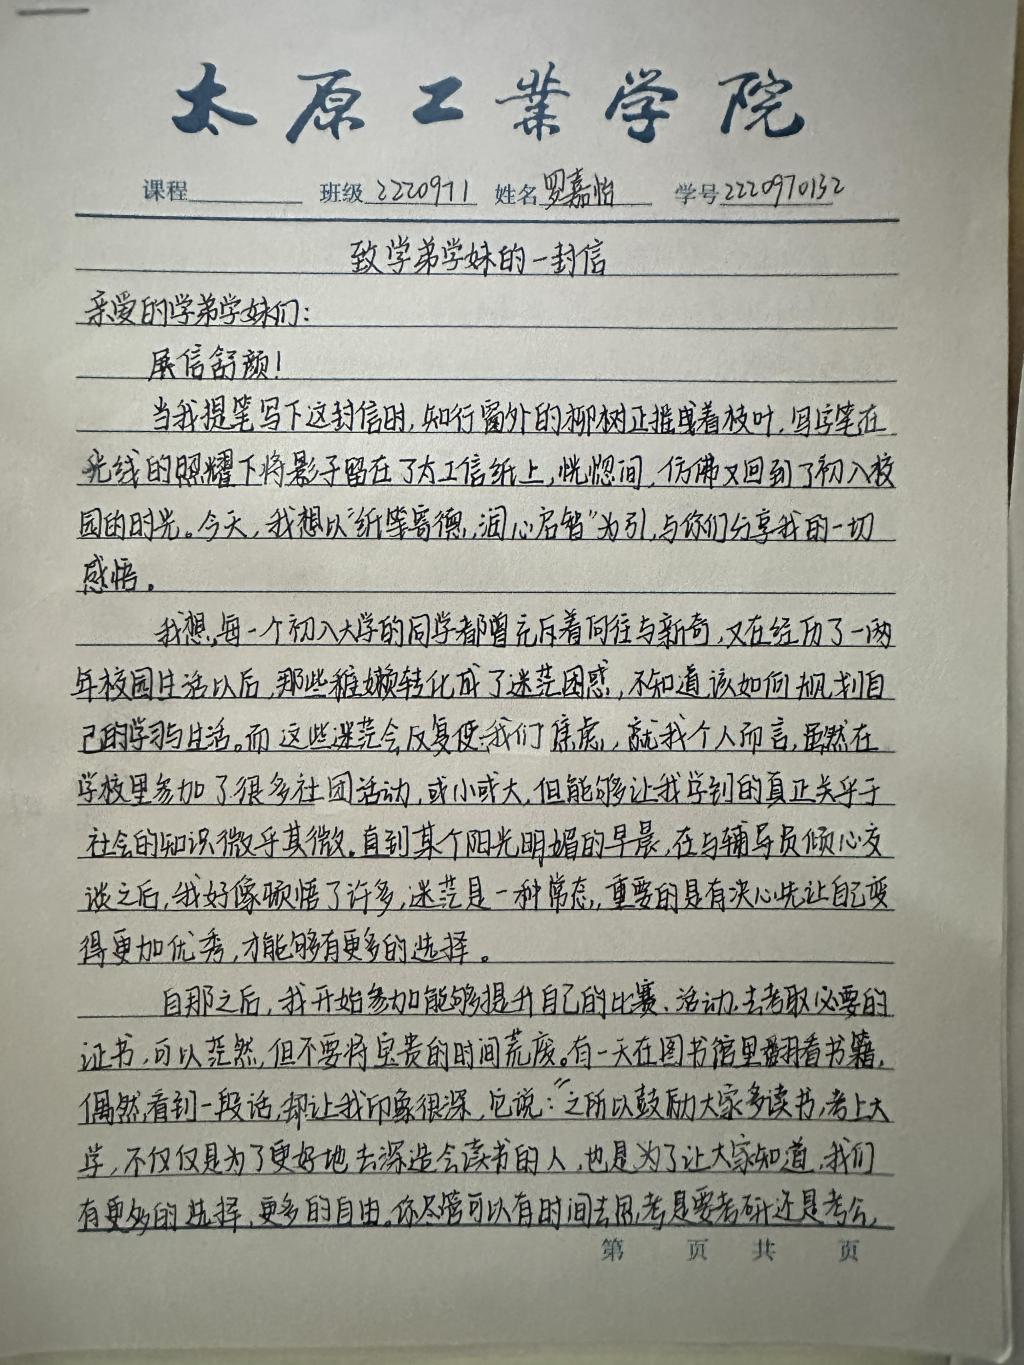 太原工業学院
课程 班级 2220971 姓名 罗嘉怡 学号 2220970132
致学弟学妹的一封信
亲爱的学弟学妹们：
展信舒颜！
当我提笔写下这封信时，知行窗外的柳树正摇曳着枝叶，写字笔在
光线的照耀下将影子留在了太工信纸上，恍惚间，仿佛又回到了初入校
园的时光。今天，我想以“纸笔寄德，润心启智”为引，与你们分享我的一切
感悟。
我想，每一个初入大学的同学都曾充斥着向往与新奇，又在经历了一两
年校园生活以后，那些稚嫩转化成了迷茫困惑，不知道该如何规划自
己的学习与生活。而这些迷茫会反复使我们焦虑，就我个人而言，虽然在
学校里参加了很多社团活动，或小或大，但能够让我学到的真正关乎于
社会的知识微乎其微。直到某个阳光明媚的早晨，在与辅导员倾心交
谈之后，我好像顿悟了许多，迷茫是一种常态，重要的是有决心先让自己变
得更加优秀，才能够有更多的选择。
自那之后，我开始参加能够提升自己的比赛、活动，去考取必要的
证书，可以茫然，但不要将宝贵的时间荒废。有一天在图书馆里翻看书籍，
偶然看到一段话，却让我印象很深，它说：“之所以鼓励大家多读书，考上大
学，不仅仅是为了更好地去深造会读书的人，也是为了让大家知道，我们
有更多的选择，更多的自由。你尽管可以有时间去思考是要考研还是考公，
第 页 共 页